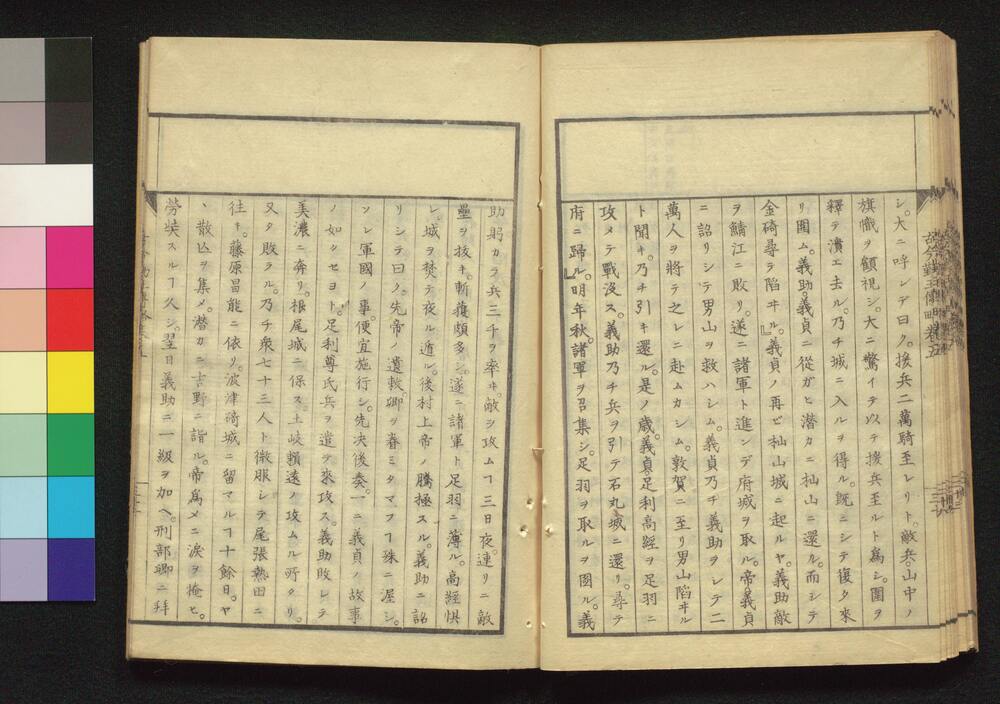 シ。大ニ呼ンデ曰ク。援兵二萬騎至レリト。敵兵。山中ノ
旗幟ヲ顧視シ。大ニ驚イテ以テ援兵至ルト為シ。圍ヲ
釋テ潰エ去ル。乃チ城ニ入ルヲ得ル。既ニシテ復タ來
リ圍ム。義助。義貞ニ從ガヒ潜カニ杣山ニ還ル。而シテ
金碕尋テ陷ヰル。』義貞ノ再ビ杣山城ニ起ルヤ。義助敵
ヲ鯖江ニ敗リ。遂ニ諸軍ト進ンデ府城ヲ取ル。帝義貞
ニ詔リシテ男山ヲ救ハシム。義貞乃チ義助ヲシテ二
萬人ヲ將テ之レニ赴ムカシム。敦賀ニ至リ男山陷ヰル
ト聞キ。乃チ引キ還ル。是ノ歳。義貞。足利高經ヲ足羽ニ
攻メテ戰没ス。義助乃チ兵ヲ引テ石丸城ニ還リ。尋テ
府ニ歸ル。』明年秋。諸軍ヲ召集シ。足羽ヲ取ルヲ圖ル。義
助躬カラ兵三千ヲ率ヰ。敵ヲ攻ムヿ三日夜。連リニ敵
壘ヲ抜キ。斬獲頗多シ。遂ニ諸軍ト足羽ニ薄ル。高經惧
レ。城ヲ焚テ夜ル遁ル。後村上帝ノ騰極スル。義助ニ詔
リシテ曰ク。先帝ノ遺敕卿ヲ眷ミタマフヿ殊ニ渥シ。
ソレ軍國ノ事。便宜施行シ。先決後奏。一ニ義貞ノ故事
ノ如クセヨト。足利尊氏兵ヲ遣テ來攻ス。義助敗レテ
美濃ニ奔リ。根尾城ニ保ス。土岐頼遠ノ攻ムル所タリ。
又タ敗ラル。乃チ衆七十三人ト微服シテ尾張熱田ニ
往キ。藤原昌能ニ依リ。波津碕城ニ留マルヿ十餘日。ヤ
ヽ散亾ヲ集メ。潜カニ吉野ニ詣ル。帝為メニ涙ヲ掩ヒ。
勞奘スルヿ久シ。翌日義助ニ一級ヲ加ヘ。刑部卿ニ拜